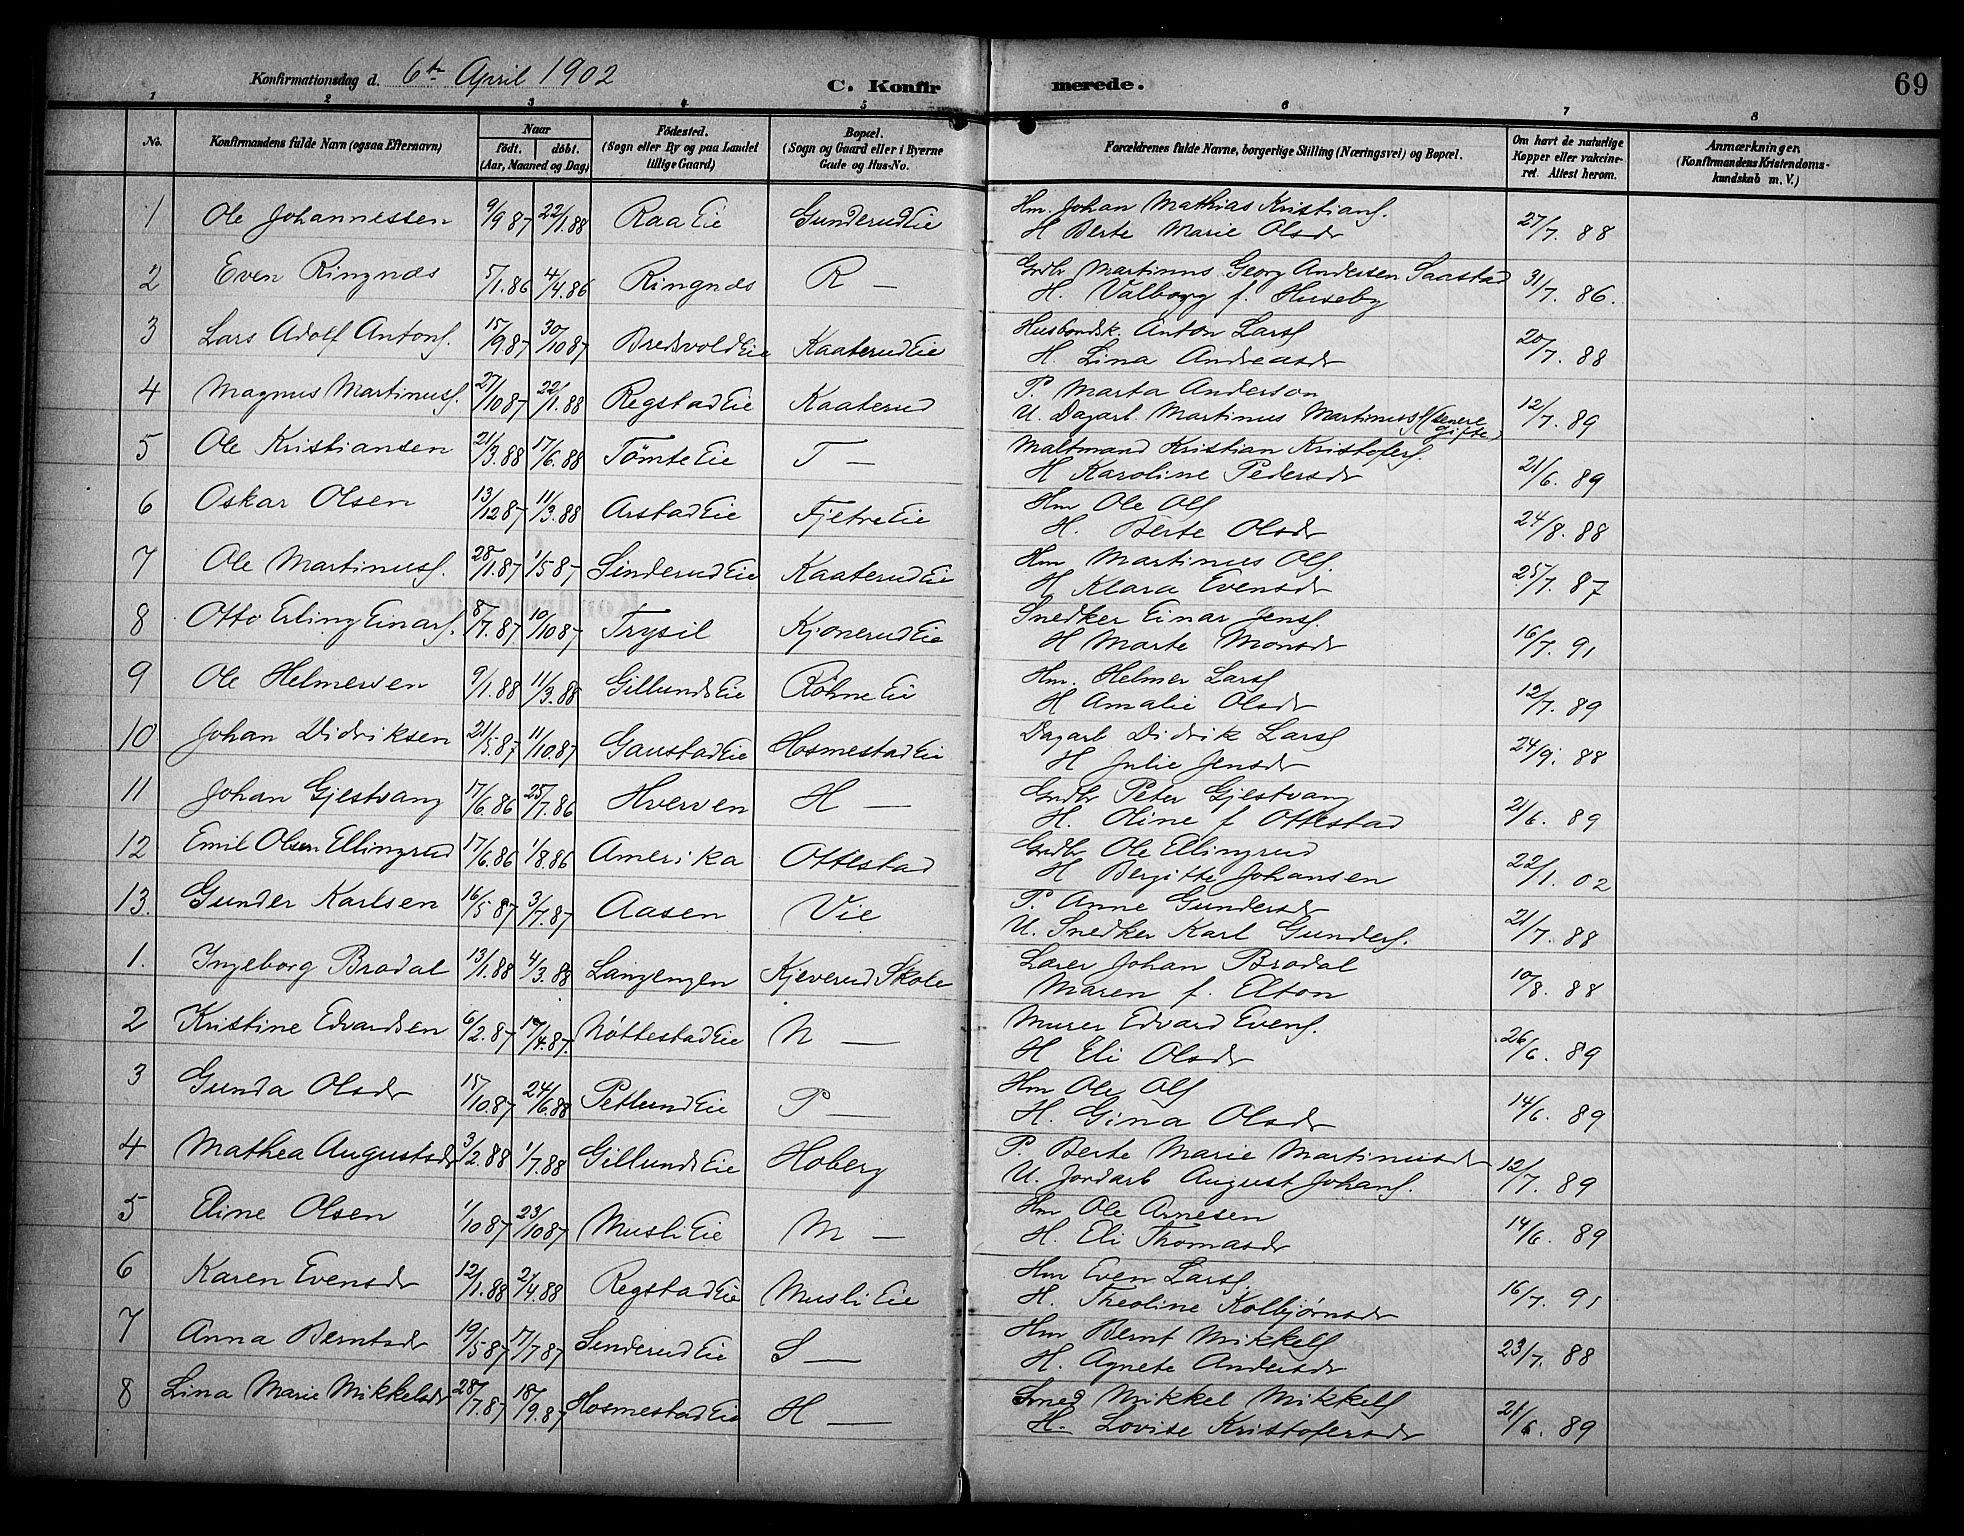 Konfirmationsdag d. 6te April 1902
C. Konfir merede. 69
1 2 3 4 5 6 7 8
No. Konfirmandens fulde Navn (ogsaa Efternavn) Naar født. døbt. (Aar, Maaned og Dag) Fødested. (Sogn eller By og paa Landet tillige Gaard) Bopæl. (Sogn og Gaard eller i Byerne Gade og Hus-No. Forældrenes fulde Navne, borgerlige Stilling (Næringsvei) og Bopæl. Om havt de naturlige Kopper eller vakcineret. Attest herom. Anmærkninger. (Konfirmandens Kristendomskundskab m. V.)
1 Ole Johannessen 9/9 87 22/1.88 Raa Eie Gunderud Eie Hm. Johan Mathias Kristians. 27/7. 88
H Berte Marie Olsdr
2 Even Ringnes 5/1.86 4/4.86 Ringnes R — Grdbr Martinus Georg Andersen Saastad 31/7. 86.
H. Valborg f. Huseby
3 Lars Adolf Antons. 15/9 87 30/10 87 Bredvold Eie Kaaterud Eie Husbondsk. Anton Larss 20/7. 88
H. Lina Andreasdr
4 Magnus Martinuss. 27/10 87 22/1.88 Regstad Eie Kaaterud P. Marta Anderson 12/7. 89
U. Dagarb. Martinus Martinuss (senere gifte)
5 Ole Kristiansen 21/3.88 17/6.88 Tömte Eie T — Maltmand Kristian Kristofers. 21/6. 89
H Karoline Pedersdr
6 Oskar Olsen 13/12 87 11/3.88 Arstad Eie Fjetre Eie Hm Ole Ols 24/8. 88
H. Berte Olsdr
7 Ole Martinuss. 28/1.87 1/5 87 Sinderud Eie Kaaterud Eie Hm Martinus Ols. 25/7. 87
H Klara Evensdr
8 Otto Erling Einars. 8/7.87 10/10 87 Trysil Kjonerud Eie Snedker Einar Jenss. 16/7. 91
H Marte Monsdr
9 Ole Helmersen 9/1.88 11/3.88 Gillunds Eie Röhne Eie Hm. Helmer Larss 12/7. 89
H Amalie Olsdr
10 Johan Didriksen 21/5.87 11/10.87 Gaustad Eie Hosmestad Eie Dagarb Didrik Larss 24/9. 88
H Julie Jensdr
11 Johan Gjestvang 17/6.86 25/7.86 Hverven H — Grdbr Peter Gjestvang 21/6. 89
H. Oline f Ottestad
12 Emil Olsen Ellingrud 17/6.86 1/8.86 Amerika Ottestad Grdbr Ole Ellingrud 22/1. 02
H Bergitte Johansen
13. Gunder Karlsen 16/5 87 3/7.87 Aasen Vie P. Anne Gundersdr 21/7. 88
U. Snedker Karl Gunders.
1. Ingeborg Brodal 13/1.88 4/3.88 Langengen Kjeverud Skole Lærer Johan Brodal 10/8. 88
Maren f. Elton
2 Kristine Edvardsen 6/2.87 17/4.87. Nöttestad Eie N — Murer Edvard Evens. 26/6. 89
H Eli Olsdr
3 Gunda Olsdr 15/10.87 24/6.88 Petlund Eie P — Hm Ole Ols 14/6. 89
H. Gina Olsdr
4 Mathea Augustsdr 3/2.88 1/7.88 Gillunds Eie Hoberg P. Berte Marie Martinusdr 12/7. 89
U. Jordarb August Johans.
5 Eline Olsen 1/10 87 23/10 87 Musli Eie M — Hm Ole Arnesen 14/6. 89
H. Eli Thomasdr
6 Karen Evensdr 12/1.88 2/4.88 Regstad Eie Musli Eie Hm Even Larss. 16/7. 91
H. Theoline Kolbjørnsdr
7 Anna Berntsdr 19/5 87 17/7 87 Sinderud Eie S — Hm Bernt Mikkels 23/7. 88
H. Agnete Andersdr
8 Lina Marie Mikkelsdr 28/7.87 18/9.87 Hosmestad Eie H — Smed Mikkel Mikkels 21/6. 89
H. Lovise Kristofersdr